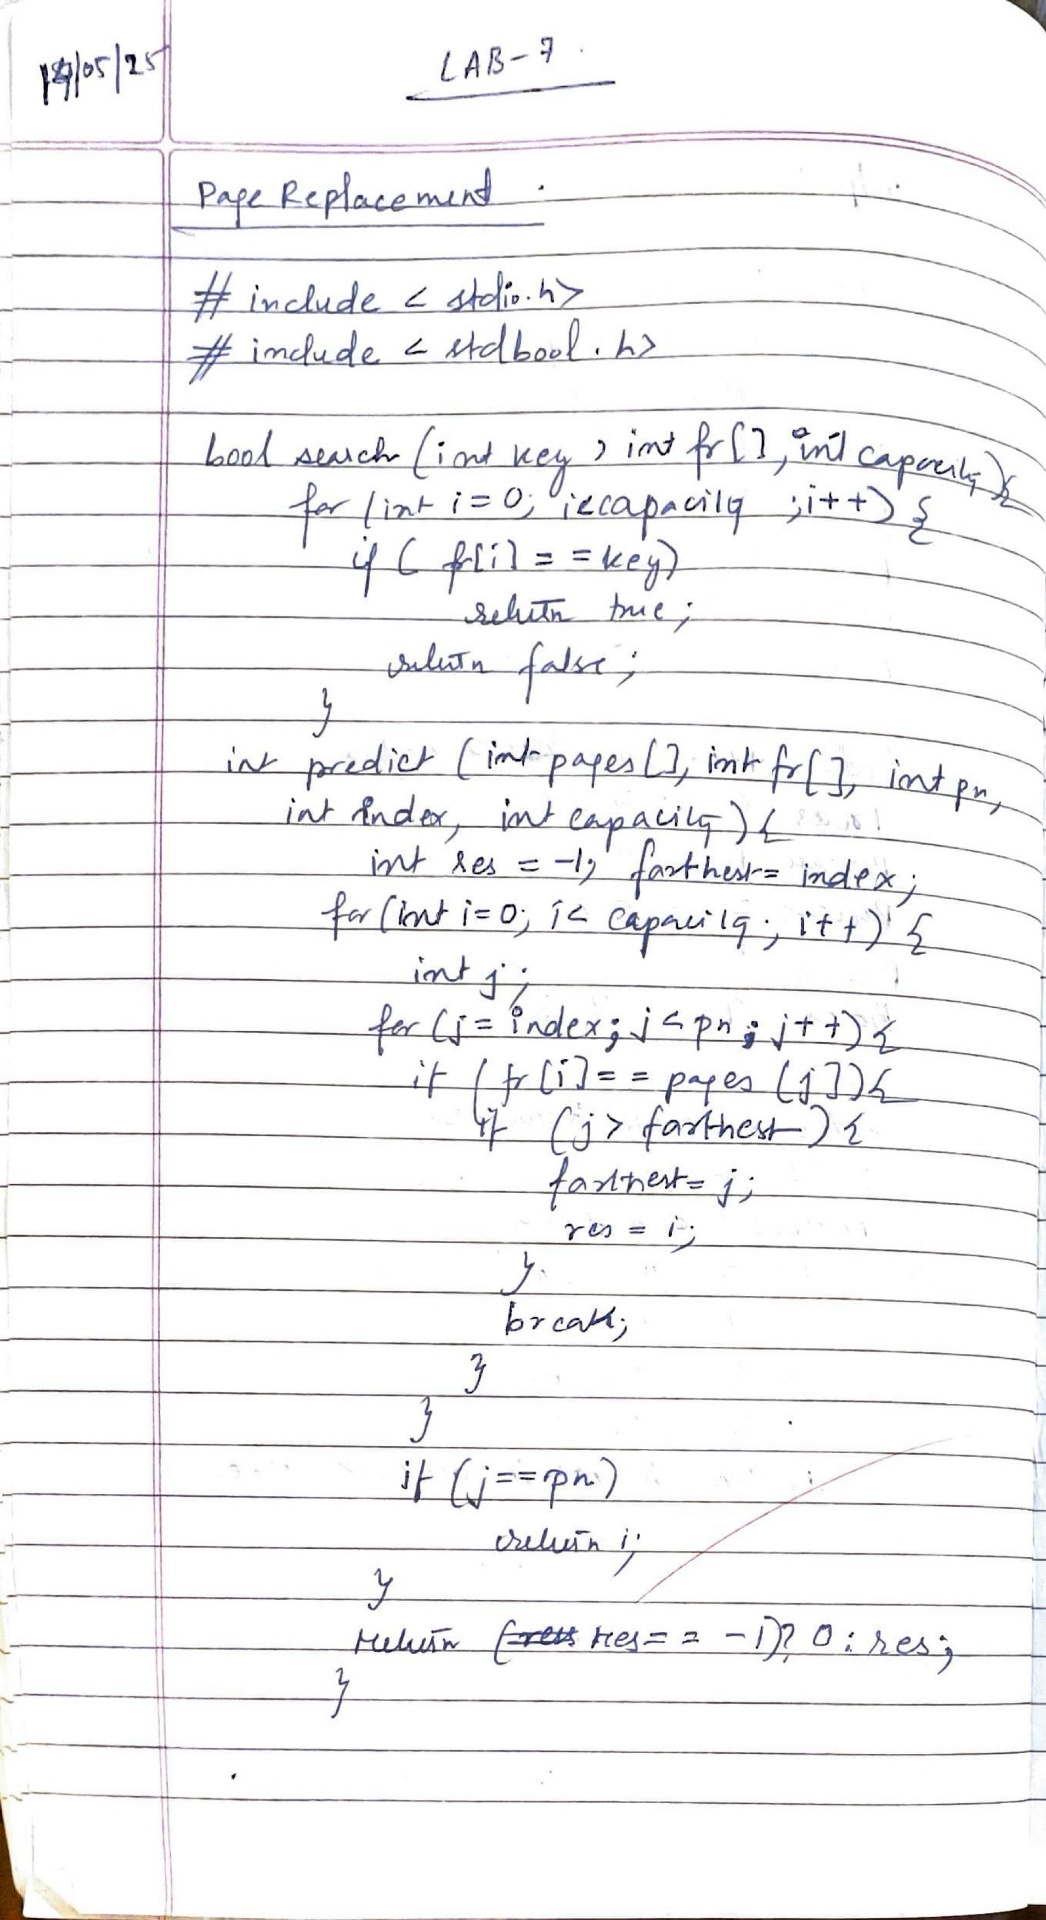 19/05/25
LAB-7.
Page Replacement :
# include < stdio.h>
# include < stdbool.h>
bool search (int key, int fr[], int capacity){
for (int i=0; i<capacity ;i++) {
if ( fr[i] = =key)
return true;
return false;
}
int predict (int pages[], int fr[], int pn,
int index, int capacity){
int res = -1, farthest= index;
for (int i=0; i< capacity; i++) {
int j;
for (j= index; j<pn; j++){
if (fr[i]= = pages [j]){
if (j> farthest) {
farthest= j;
res = i;
}
break;
}
}
if (j==pn)
return i;
}
return (res= = -1)? 0: res;
}